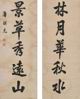 林月華秋水
景草秀遠山